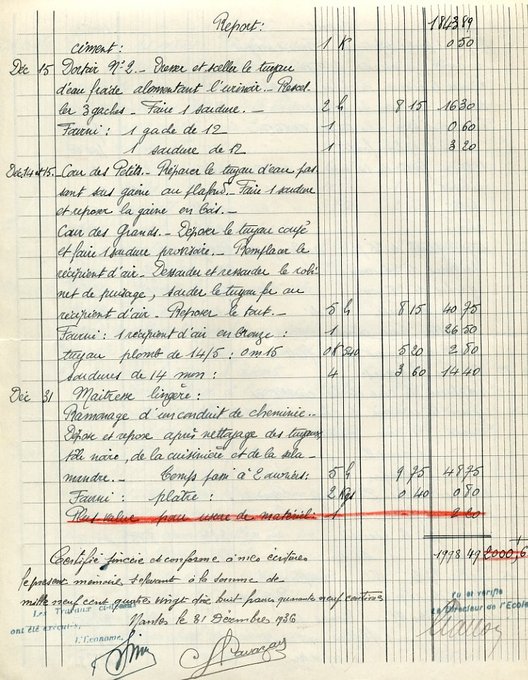 Report: 1843 89
ciment: 1 K 0 50
Déc 15 Dortoir Nº2._ Dresser et sceller le tuyau
d'eau froide alimentant l'urinoir._ Rescel-
ler 3 gaches._ Faire 1 soudure._ 2 h 8 15 16 30
Fourni: 1 gache de 12 1 0 60
1 soudure de 12 1 3 20
Déc 14 et 15._ Cour des Petits._ Réparer le tuyau d'eau pas
sant sous gaine au Faire 1 soudure
et reposer la gaine en bois._
Cour des Grands._ Déposer le tuyau coupé
et faire 1 soudure provisoire._ Remplacer le
récipient d'air._ Dessouder et ressouder le robi-
net de puisage, souder le tuyau au
récipient d'air._ Reposer le tout._ 5 h 8 15 40 75
Fourni: 1 récipient d'air en bronze: 1 26 50
tuyau plomb de 14/5: 0m15 0K540 5 20 2 80
soudures de 14 mm: 4 3 60 14 40
Déc 31 Maitresse lingère:
Ramonage d'un conduit de cheminée._
Dépose et repose après nettoyage des tuyaux
tôle noire, de la cuisinière et de la sala-
mandre._ Temps passé à 2 ouvriers: 5 h 9 75 48 75
Fourni: plâtre: 2 Kgs 0 40 0 80
Plus value pour usure de matériel: 1 2 20
1998 49 2000,6
Certifié sincère et conforme à mes écritures
le présent mémoire s'élevant à la somme de
mille neuf cent quatre vingt dix huit francs quarante neuf centimes
Les Travaux ci-dessus
ont été exécutés,
L'Econome,
Nantes le 31 Décembre 1936
Vu et vérifié
Le Directeur de l'Ecole